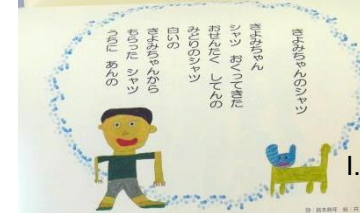 きよみちゃんのシャツ
きよみちゃん
シャツ おくってきた
おせんたく してんの
みどりのシャツ
白いの
きよみちゃんから
もらった シャツ
うちに あんの
I.